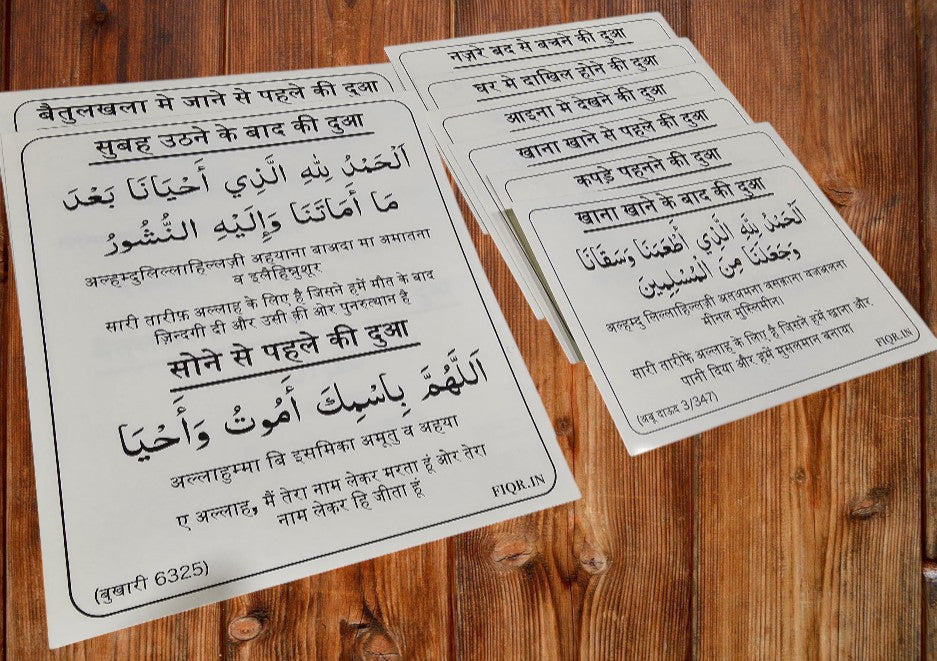 बैतुलखला मे जाने से पहले की दुआ
सुबह उठने के बाद की दुआ
اَلْحَمْدُ لِلّٰهِ الَّذِي أَحْيَانَا بَعْدَ
مَا أَمَاتَنَا وَإِلَيْهِ النُّشُورُ
अल्हम्दुलिल्लाहिल्लज़ी अहयाना बाअदा मा अमातना
व इलैहिन्नुशूर
सारी तारीफ़ अल्लाह के लिए है जिसने हमें मौत के बाद
ज़िन्दगी दी और उसी की ओर पुनरुत्थान है
सोने से पहले की दुआ
اَللّٰهُمَّ بِاسْمِكَ أَمُوتُ وَأَحْيَا
अल्लाहुम्मा बि इसमिका अमूतु व अहया
ए अल्लाह, मैं तेरा नाम लेकर मरता हूं ओर तेरा
नाम लेकर हि जीता हूं
FIQR.IN
(बुखारी 6325)
नज़रे बद से बचने की दुआ
घर मे दाखिल होने की दुआ
आइना मे देखने की दुआ
खाना खाने से पहले की दुआ
कपड़े पहनने की दुआ
खाना खाने के बाद की दुआ
اَلْحَمْدُ لِلّٰهِ الَّذِي أَطْعَمَنَا وَسَقَانَا
وَجَعَلَنَا مِنَ الْمُسْلِمِينَ
अल्हम्दु लिल्लाहिल्लज़ी अतअमना वसक़ाना वजअलना
मीनल मुस्लिमीन।
सारी तारीफें अल्लाह के लिए है जिसने हमें खाना और
पानी दिया और हमें मुसलमान बनाया
FIQR.IN
(अबू दाऊद 3/347)